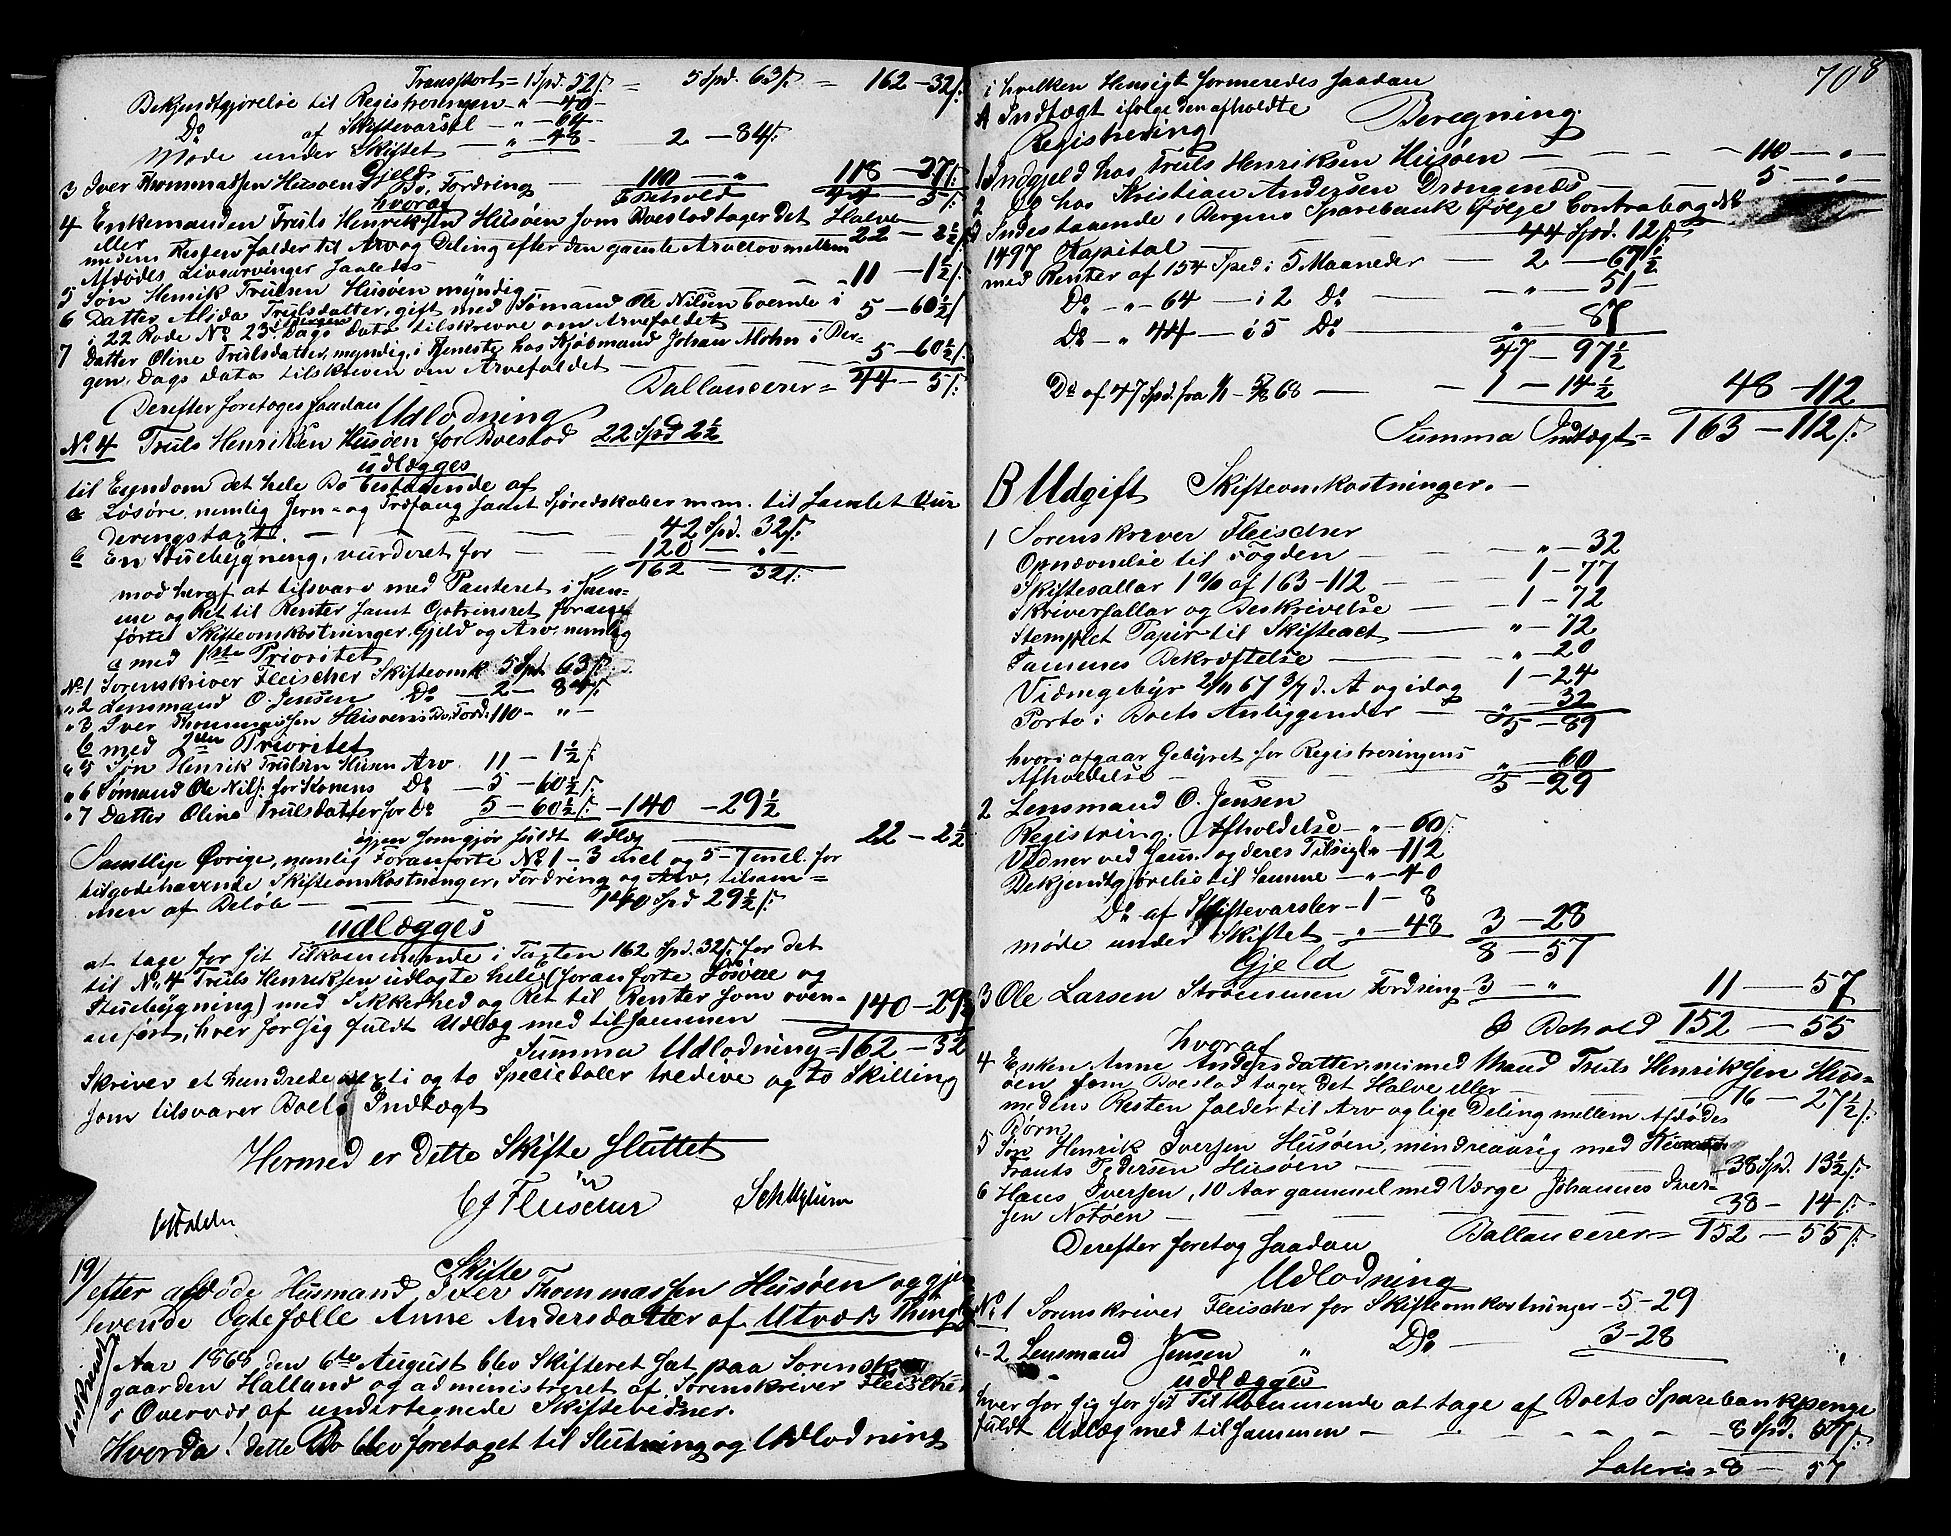 Transport = 1 Spd. 52 ſ: = 5 Spd. 63 ſ: = 162 – 32 ſ:
Bekjendtgjørelse til Registreringen – „ – 40 –
Do af Skiftevarsel – „ – 64
Møde under Skiftet – „ – 48 – 2 – 84 ſ:
Gjeld 118 – 27 ſ:
3 Iver Thommassen Husøens Bo, Fordring 110 – „
hvoraf Behold 44 – 5 ſ:
4 Enkemanden Truls Henriksen Husøen som Boeslod tager det Halve
eller 22 – 2½ ſ:
medens Resten falder til Arv og Deling efter den gamle Arvelov mellem
Afdødes Livsarvinger saaledes
5 Søn Henrik Trulsen Husøen myndig – 11 – 1½ ſ:
6 Datter Alida Trulsdatter, gift med Sømand Ole Nilsen boende i
i 22 Rode No 23 i Bergen Dags Dato tilskreven om Arvefaldet 5 – 60½ ſ
7 Datter Oline Trulsdatter, myndig, i Tjeneste hos Kjøbmand Johan Mohn i Ber-
gen, Dags Dato tilskreven om Arvefaldet – 5 – 60½ ſ:
Ballancerer = 44 – 5 ſ:
Derefter foretoges saadan
Udlodning
No 4 Truls Henriksen Husøen for Boeslod 22 Spd 2½
udlægges
til Eiendom det hele Bo bestaaende af
a Løsøre, nemlig Jern- og Træfang samt Sjøredskaber m.m. til samlet Vur
deringstaxt. – 42 Spd. 32 ſ:
b En Stuebygning, vurderet for – 120 – „ –
162 – 32 ſ:
mod heraf at tilsvare med Panteret i sam-
me og Ret til Renter samt Opfrinsret foran
førte Skifteomkostninger, Gjeld og Arv, nemlig
a med 1ste Prioritet
No 1 Sorenskriver Fleischer Skifteomk 5 Spd. 63 ſ:
„ 2 Lensmand O. Jensen Do – 2 – 84 ſ:
„ 3 Iver Thommassen Husøens Bo, Ford: 110 – „ –
b med 2den Prioritet
„ 5 Søn Henrik Trulsen Husøen Arv 11 – 1½ ſ:
„ 6 Sømand Ole Nils: for Konens Do – 5 – 60½ ſ:
„ 7 Datter Oline Trulsdatter for Do 5 – 60½ ſ: – 140 – 29½
igjen som gjør fuldt Udlæg – 22 – 2½
Samtlige Øvrige, nemlig Foranførte No 1 – 3 incl og 5 – 7 incl. for
tilgodehavende Skifteomkostninger, Fordring og Arv, tilsam-
men af Beløb – 140 Spd 29½ ſ:
udlægges
at tage for sit Tilkommende i Taxten 162 Spd. 32 ſ: for det
til No 4 Truls Henriksen udlagte hele Bo (foranførte Løsøre og
Stuebygning) med Sikkerhed og Ret til Renter som oven-
anført, hver for sig fuldt Udlæg med tilsammen – 140 – 29½
Summa Udlodning = 162 – 32
Skriver et hundrede sexti og to Speciedaler tredive og to Skilling
som tilsvarer Boets Indtægt
Hermed er dette Skifte sluttet
CJ Fleischer
19/ Skifte
efter afdøde Husmand Iver Thommassen Husøen og gjen
levende Egtefælle Anne Andersdatter af Utvær Thingl
Aar 1868 den 6te August blev Skifteret sat paa Sorenskriver
gaarden Halland og administreret af Sorenskriver Fleischer
i Overvær af undertegnede Skiftevidner.
Hvorda i dette Bo blev foretaget til Slutning og Udlodning
708
i hvilken Hensigt formeredes saadan
Beregning.
A Indtægt ifølge den afholdte
Registrering
1 Indgjeld hos Truls Henriksen Husøen – 110 – „ –
2 Do hos Kristian Andersen Drængenæs – 5 – „ –
3 Indestaaende i Bergens Sparebank ifølge Contrabog No
1497 Kapital – 44 Spd. 12 ſ:
med Renter af 154 Spd i 5 Maaneder – 2 – 67½
Do – „ 64 – i 2 Do – „ – 51 –
Do – „ 44 – i 5 Do – „ – 87
47 – 97½
Do af 47 Spd. fra 1/1 – 5/8 68 – 1 – 14½ 48 – 112
Summa Indtægt = 163 – 112 ſ:
B Udgift Skifteomkostninger. –
1 Sorenskriver Fleischer
Opnævnelse til Fogden – „ – 32
Skiftesallar 1 % af 163 – 112 – 1 – 77
Skriversallar og Beskrivelse – 1 – 72
Stemplet Papir til Skifteact – „ – 72
Sammes Bekræftelse – „ – 20
Vidnegebyr 2/11 67 3/7 d. A og idag 1 – 24
Porto i Boets Anliggender – „ – 32
5 – 89
hvori afgaar Gebyret for Registreringens
Afholdelse – „ – 60
5 – 29
2 Lensmand O. Jensen
Registring. Afholdelse – „ – 60 ſ:
Vidner ved sam. og deres Tilsigl „ – 112
Bekjendtgjørelse til Samme – „ – 40
Do af Skiftevarsler – 1 – 8
møde under Skiftet – „ – 48 3 – 28
8 – 57
Gjeld
3 Ole Larsen Strømmen Fordring – 3 – „ 11 – 57
Behold 152 – 55
hvoraf
4 Enken Anne Andersdatter, nu med Mand Truls Henriksen Hus-
øen som Boeslod tager det Halve eller – 76 – 27½ ſ:
medens Resten falder til Arv og lige Deling mellem Afdødes
Børn
5 Søn Henrik Iversen Husøen, mindreaarig med
Frants Pedersen Husøen – 38 Spd. 13½ ſ:
6 Hans Iversen, 10 Aar gammel med Værge Johannes Iver-
sen Notøen – 38 – 14 ſ:
Ballancerer = 152 – 55 ſ:
Derefter foretog saadan
Udlodning
No 1 Sorenskriver Fleischer for Skifteomkostninger – 5 – 29
„ – 2 Lensmand Jensen „ Do – 3 – 28
udlægges
hver for sig for sit Tilkommende at tage af Boets Sparebankpenge
fuldt Udlæg med tilsammen – 8 Spd. 57 ſ:
Lateris = 8 – 57